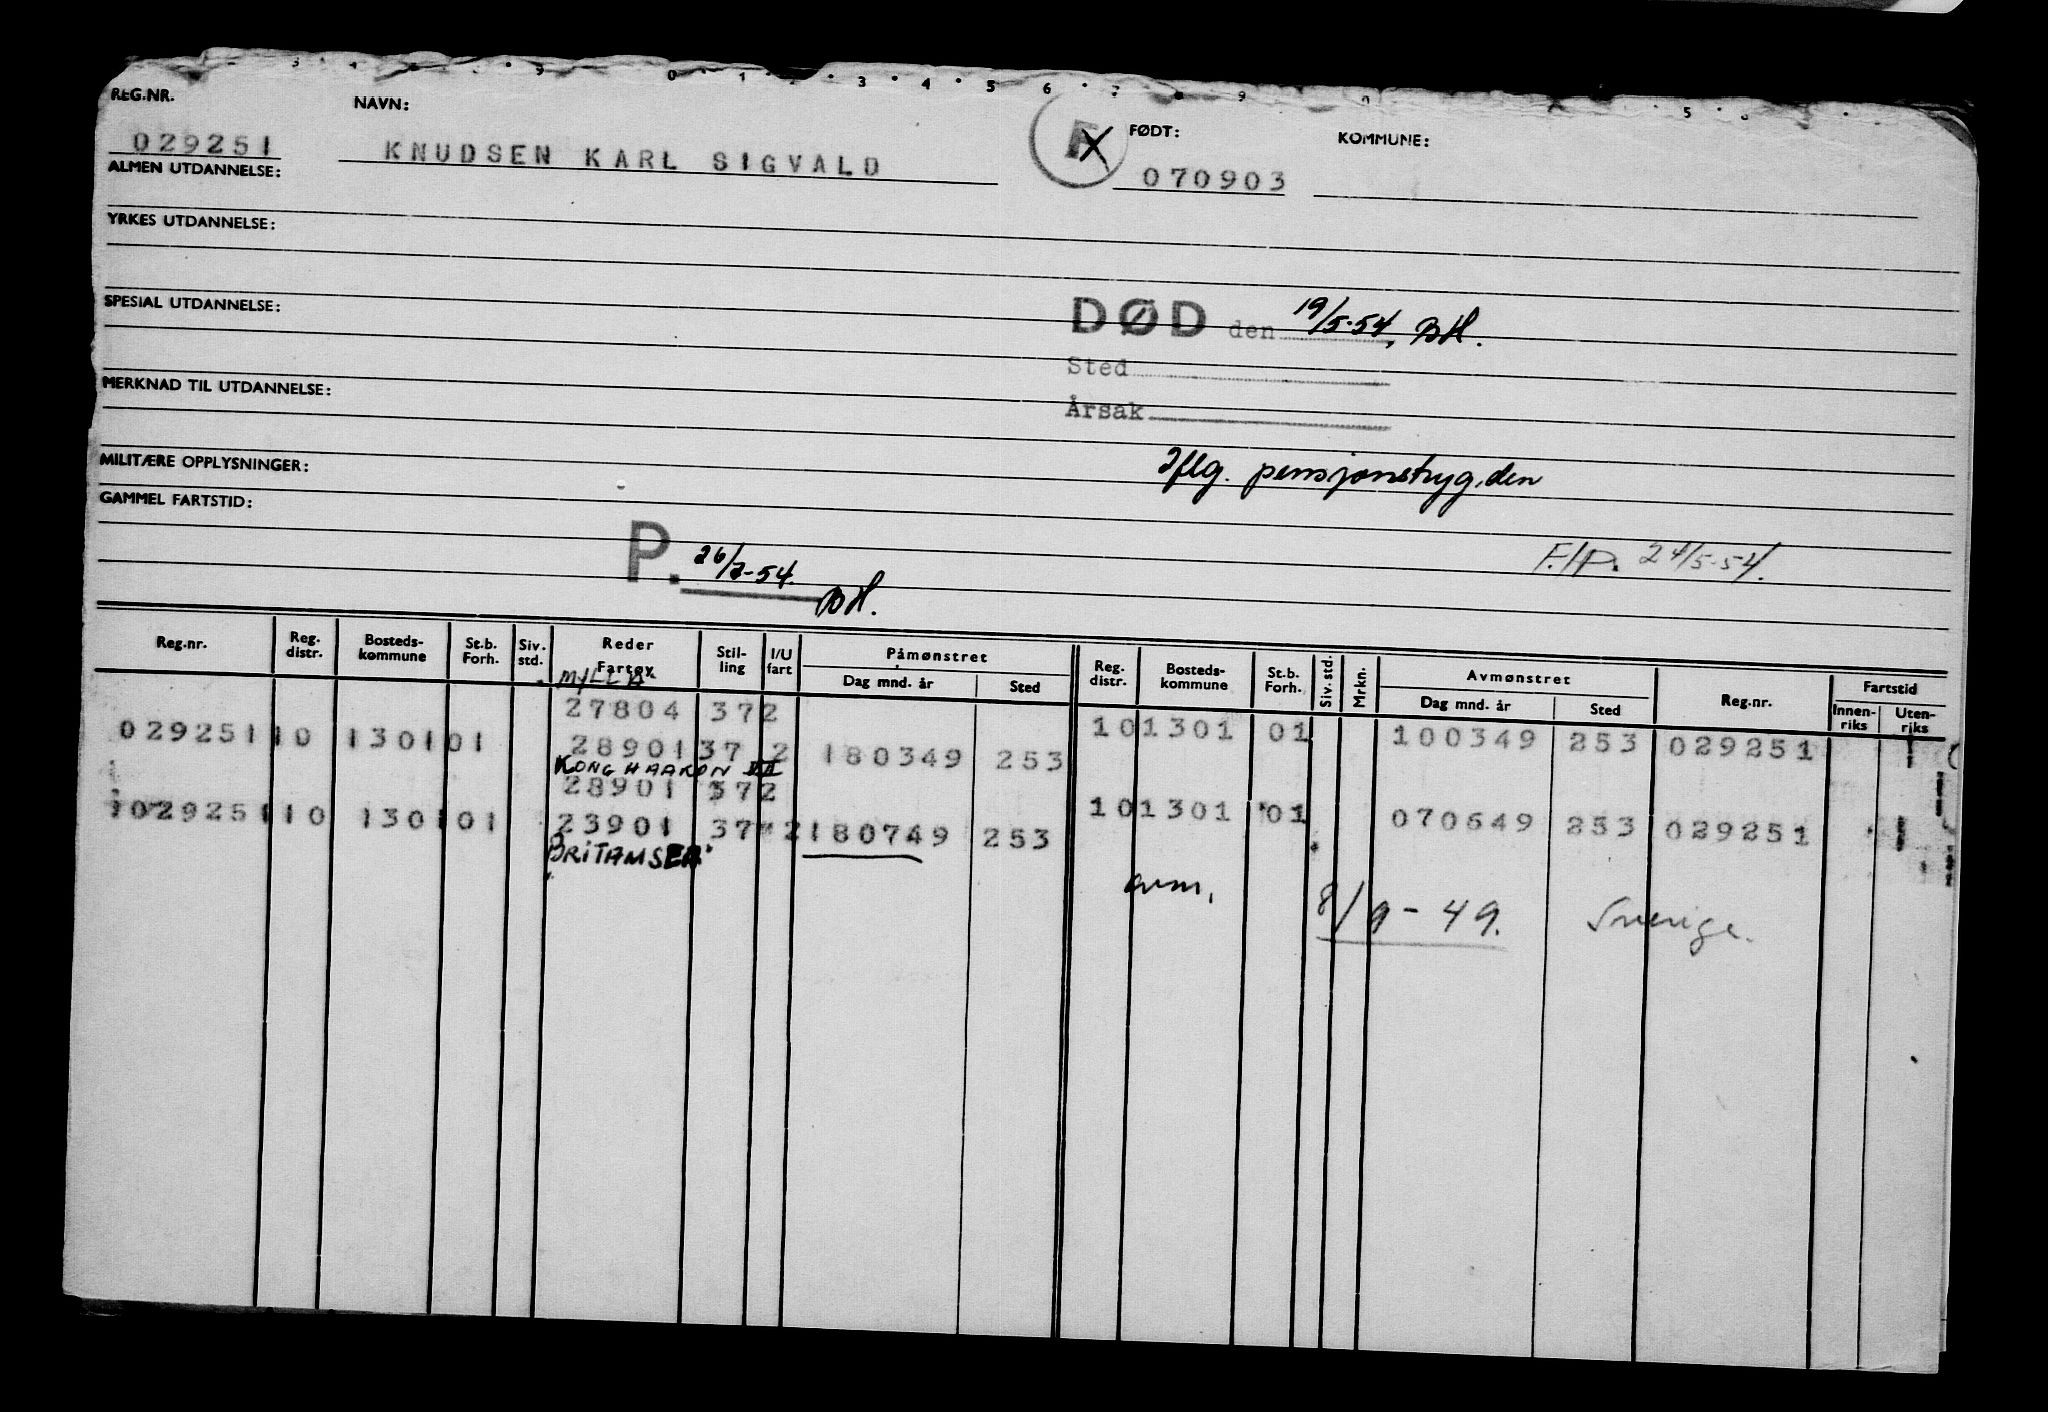 3 9 0 1 3 4 5 6 7 9 5
REG.NR. NAVN: FØDT: KOMMUNE:
029251 KNUDSEN KARL SIGVALD F X 070903
ALMEN UTDANNELSE:
YRKES UTDANNELSE:
SPESIAL UTDANNELSE: DØD den 19/5-54, BH.
Sted
MERKNAD TIL UTDANNELSE: Årsak
MILITÆRE OPPLYSNINGER: Iflg. pensjonstryg.den
GAMMEL FARTSTID:
P. 26/2-54. BH. F./P. 24/5-54.
Reg.nr. Reg. distr. Bosteds- kommune St.b. Forh. Siv. std. Reder Fartøy Stil- ling I/U fart Påmønstret Reg. distr. Bosteds- kommune St.b. Forh. Siv. std. Mrkn. Avmønstret Reg.nr. Fartstid
Dag mnd. år Sted Dag mnd. år Sted Innen- riks Uten- riks
27804 37 2 10 1301 01 100349 253 029251
029251 10 1301 01 28901 37 2 180349 253
KONG HAAKON VII
28901 37 2 10 1301 01 070649 253 029251
029251 10 1301 01 23901 37 2 180749 253
BRITAMSEA
avm. 8/9-49. Sverige.